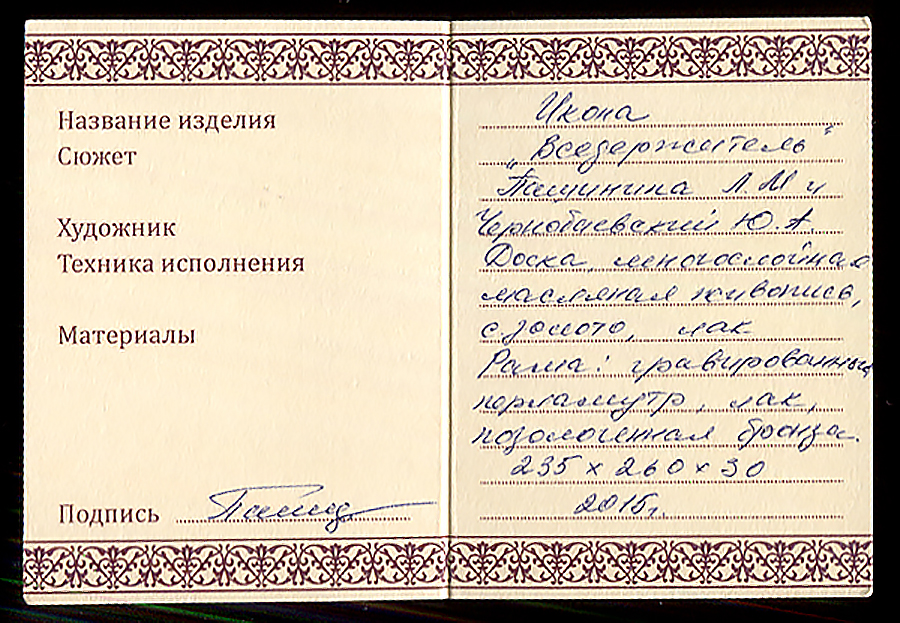 Название изделия
Сюжет
Художник
Техника исполнения
Материалы
Подпись
Икона
„Вседержитель"
Пашинина Л.М и
Чернобаевский Ю.А.
Доска, многослойная
масляная живопись,
с.золото, лак
Рама: гравированный
перламутр, лак,
позолоченная бронза.
235 x 260 x 30
2015г.